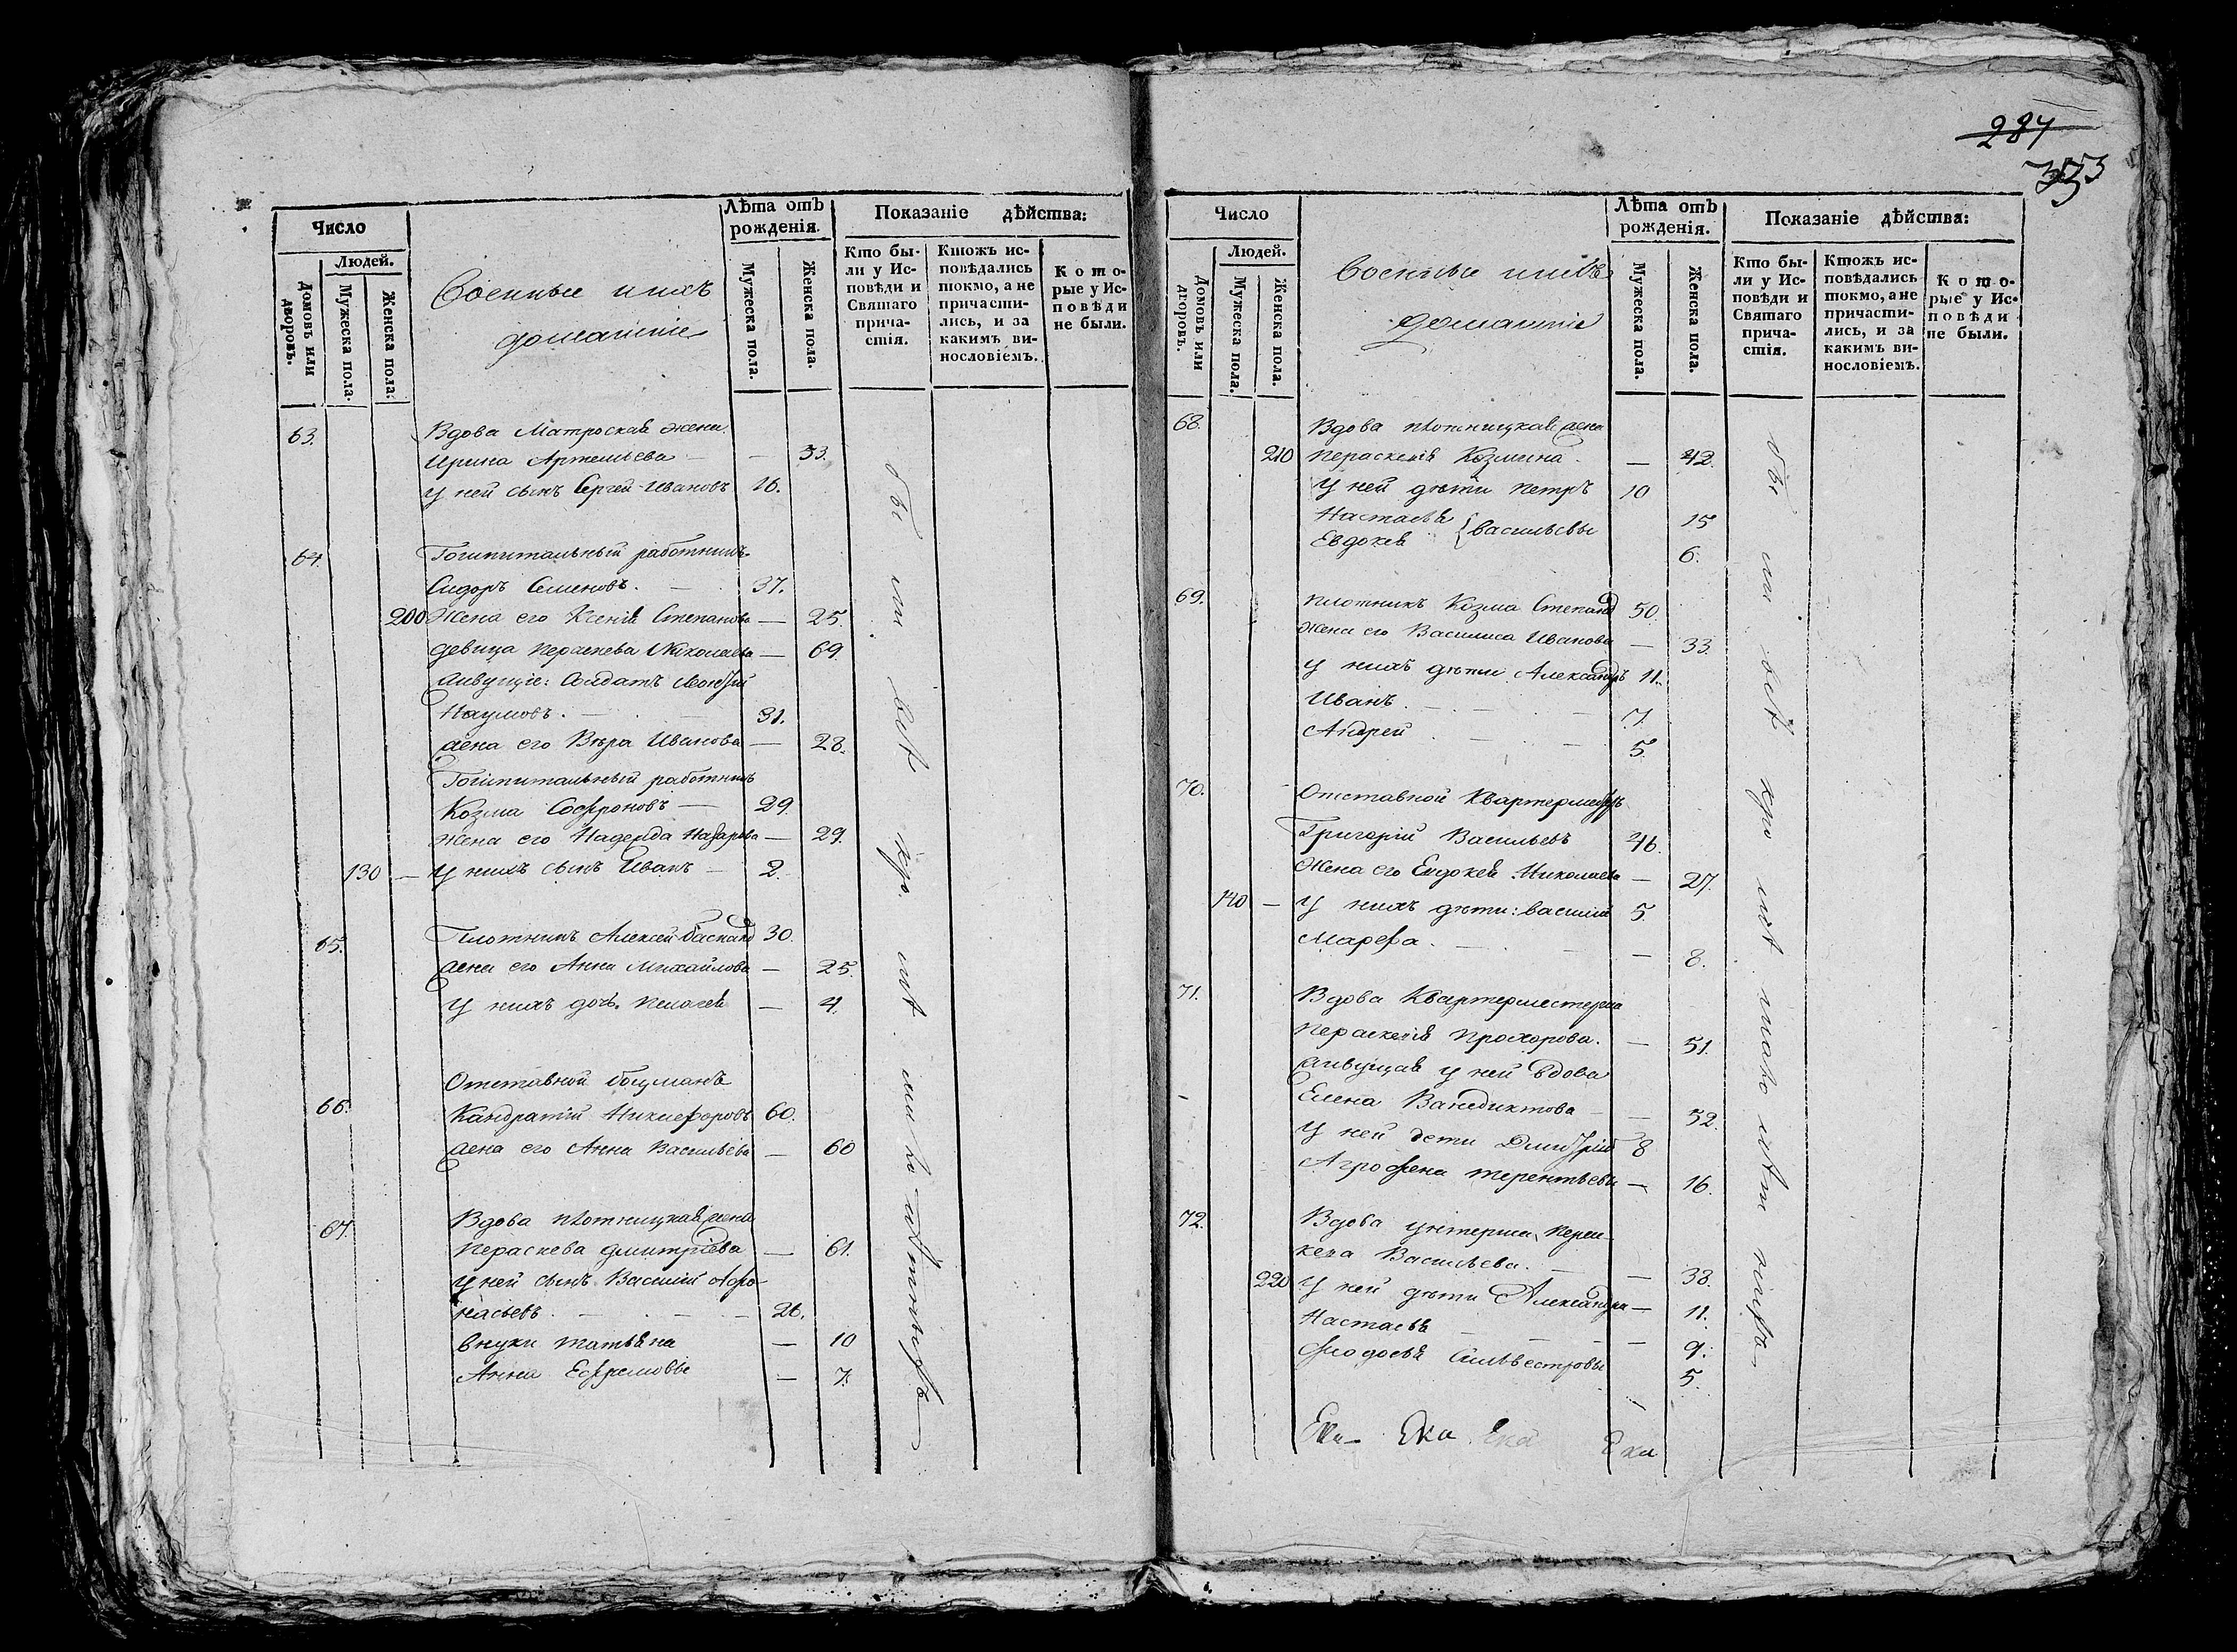 287
Число
Людей.
Домовъ или дворовъ.
Мужеска пола.
Женска пола.
Военные и ихъ
домашніе
Лѣта отъ рожденія.
Мужеска пола.
Женска пола.
Показаніе дѣйства:
Кто бы-
ли у Ис-
повѣди и
Святаго
прича-
стія.
Ктожъ ис-
повѣдались
токмо, а не
причасти-
лись, и за
какимъ ви-
нословіемъ.
Кото-
рые у Ис-
повѣди
не были.
63. Вдова Матроская жена
Ирина Артемьева — 33.
у ней сынъ Сергей Ивановъ 16.
64. Гошпитальный работникъ
Сидоръ Семеновъ. — 37.
200 Жена его Ксенія Степанова — 25.
девица Пераскева Николаева — 69.
живущіе: Солдатъ
Наумовъ. — 31.
жена его Вѣра Иванова — 28.
Гошпитальный работникъ
Козма Софроновъ — 29.
жена его Надежда Назарова — 29.
130 — у нихъ сынъ Иванъ — 2.
65. Плотникъ Алексей 30.
жена его Анна Михайлова — 25.
у нихъ дочь Пелагея — 4.
Отставной боцманъ
66. Кандратій Никифоровъ 60.
жена его Анна Васильева — 60
67. Вдова плотницкая жена
Пераскева Дмитріева — 61.
у ней сынъ Василій Афо-
насьевъ. — 26.
внуки Татьяна — 10
Анна Ефремовы — 7.
Число
Людей.
Домовъ или дворовъ.
Мужеска пола.
Женска пола.
Военные и ихъ
домашніе
Лѣта отъ рожденія.
Мужеска пола.
Женска пола.
Показаніе дѣйства:
Кто бы-
ли у Ис-
повѣди и
Святаго
прича-
стія.
Ктожъ ис-
повѣдались
токмо, а не
причасти-
лись, и за
какимъ ви-
нословіемъ.
Кото-
рые у Ис-
повѣди
не были.
68. Вдова плотницкая жена
210 Пераскевія Козмина. — 42.
у ней дѣти Петръ 10
Настасья 15
Евдокея { Васильевы 6.
69. Плотникъ Козма Степановъ 50.
жена его Василиса Иванова — 33.
у нихъ дѣти Александръ 11.
Иванъ. — 7.
Андрей — 5.
70. Отставной Квартермистръ
Григорій Васильевъ 46.
Жена его Евдокея Николаева — 27.
140 — у нихъ дѣти: Василій 5.
Марефа. — 8.
71. Вдова Квартермистерша
Пераскевія Прохорова. — 51.
живущая у ней вдова
Елена Ванедиктова — 52.
у ней дети Дмитрій 8
Агрофена Терентьевы — 16.
72. Вдова унтерша Перас-
кева Васильева. — 38.
220 у ней дѣти Александра — 11.
Настасья — 9.
Феодосья Сильвестровы 5.
Ека Ека Ека Ека